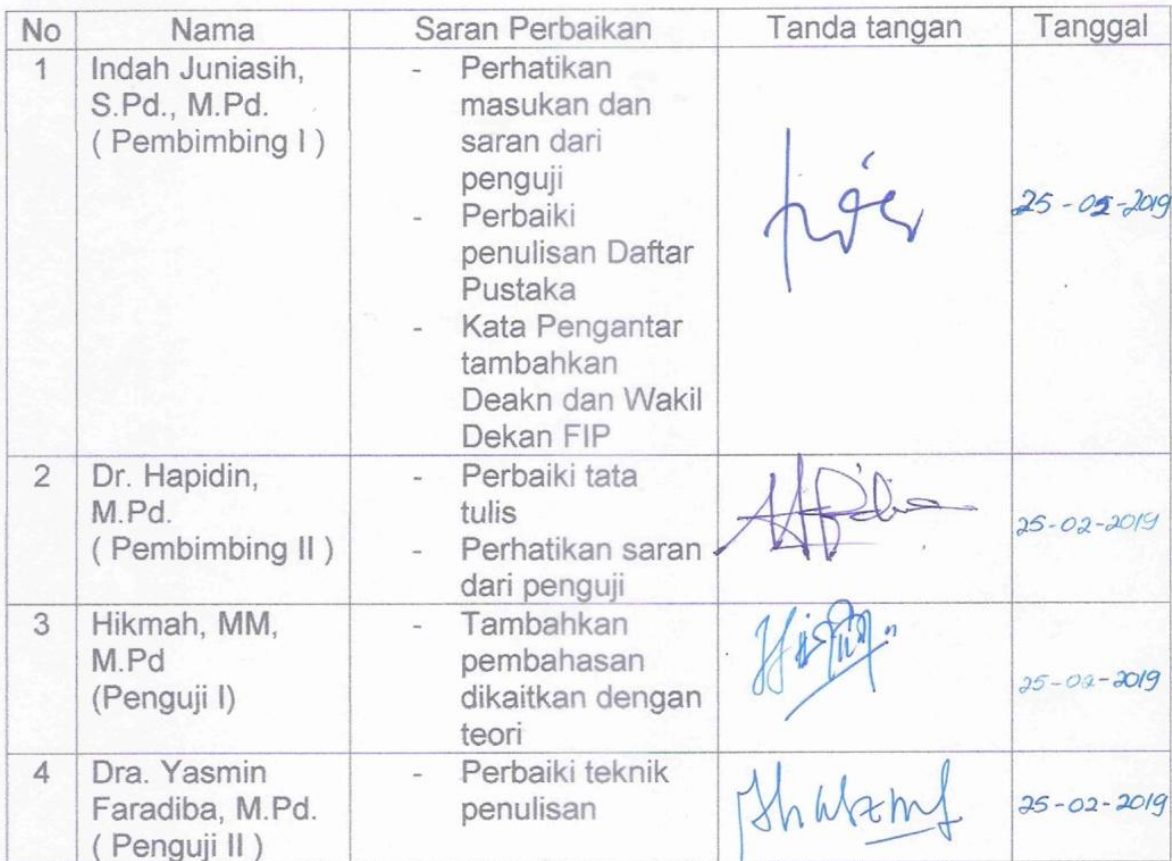 No Nama Saran Perbaikan Tanda tangan Tanggal
1 Indah Juniasih,
S.Pd., M.Pd.
( Pembimbing I )
- Perhatikan
masukan dan
saran dari
penguji
- Perbaiki
penulisan Daftar
Pustaka
- Kata Pengantar
tambahkan
Deakn dan Wakil
Dekan FIP
25-02-2019
2 Dr. Hapidin,
M.Pd.
( Pembimbing II )
- Perbaiki tata
tulis
- Perhatikan saran
dari penguji
25-02-2019
3 Hikmah, MM,
M.Pd
(Penguji I)
- Tambahkan
pembahasan
dikaitkan dengan
teori
25-02-2019
4 Dra. Yasmin
Faradiba, M.Pd.
( Penguji II )
- Perbaiki teknik
penulisan
25-02-2019